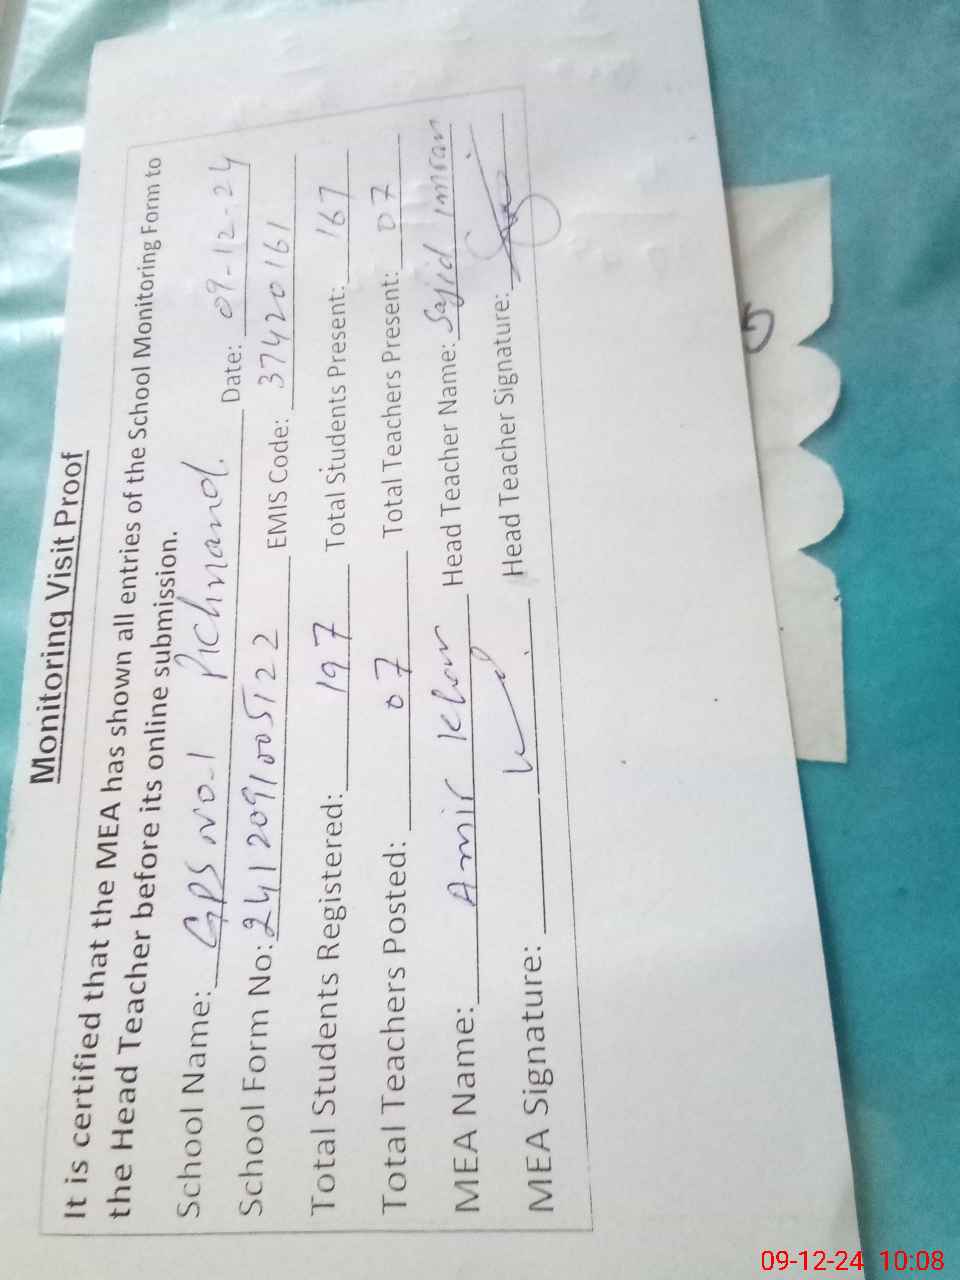 Monitoring Visit Proof
It is certified that the MEA has shown all entries of the School Monitoring Form to
the Head Teacher before its online submission.
School Name: GPS No-1 Pichnand. Date: 09-12-24
School Form No: 2412091005122 EMIS Code: 37420161
Total Students Registered: 197 Total Students Present: 167
Total Teachers Posted: 07 Total Teachers Present: 07
MEA Name: Amir Khan Head Teacher Name: Sajid Imran
MEA Signature: Head Teacher Signature:
09-12-24 10:08